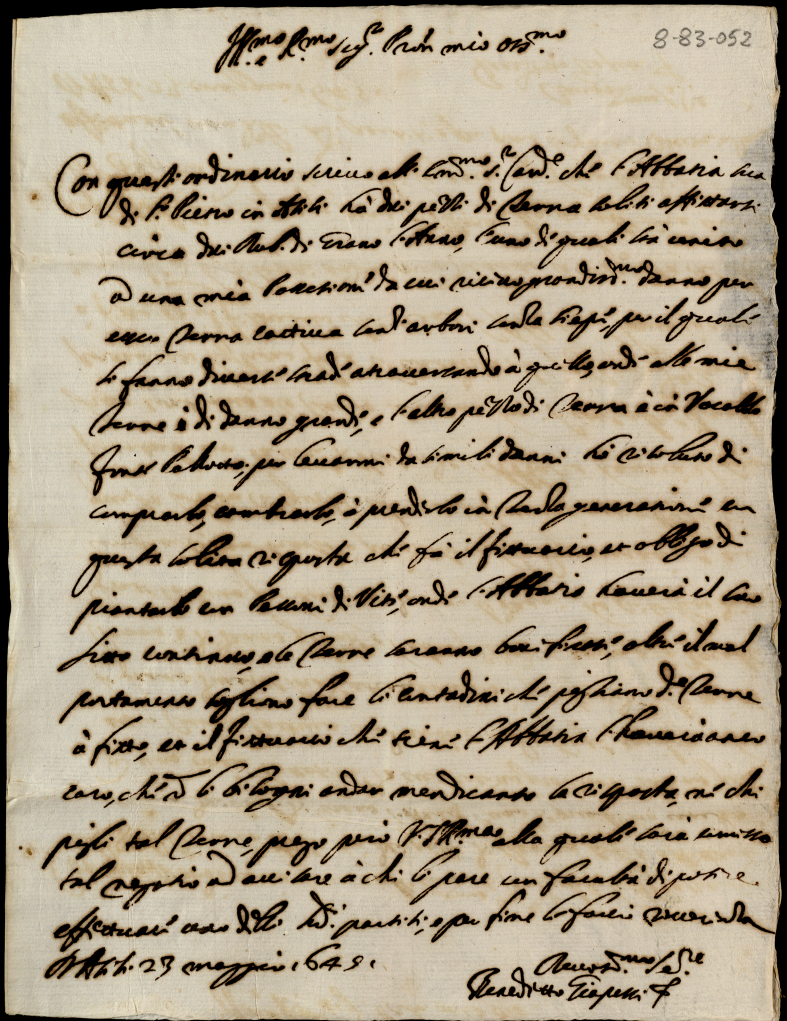 8-83-052
Ill.mo e R.mo Sig.r Pron mio oss.mo
Con quest ordinario scrivo all Em.mo S.r Card.e che l'Abbatia sua
di S. Pietro in Atili hà dui pezzi di terra soliti affittarsi
circa dui Rub. di Grano l'Anno, l'uno de quali stà unito
ad una mia Possessione da cui ricevo grandiss.mo danno per
esser terra cattiva senz'arbori senza siepe, per il quale
si fanno diverse strade atraversando à quello, onde alle mie
terre è di danno grande, e l'altro pezzo di terra è in Vocabolo
per levarmi da simili danni hò risoluto di
comprarlo, ò prenderlo in terza generatione con
questa solita risposta che fà il fittuario, et obligo di
piantarlo con di Vite, onde l'Abbatia haverà il suo
fitto continuo, e le terre saranno bonificate, oltre il mal
portamento sogliono fare li contadini che pigliano d.e terre
à fitto, et il fittuario che tiene l'Abbatia l'haverà anco
caro, che li bisogni andar mendicando la risposta, ne chi
pigli tal terre, prego però V.S. Ill.ma alla quale sarà
tal negotio ad avisare à chi li pare con facoltà di potere
effettuare uno delli partiti, e per fine li faccio riverenza
Atili 23 maggio 1645.
Ser.re
Benedetto